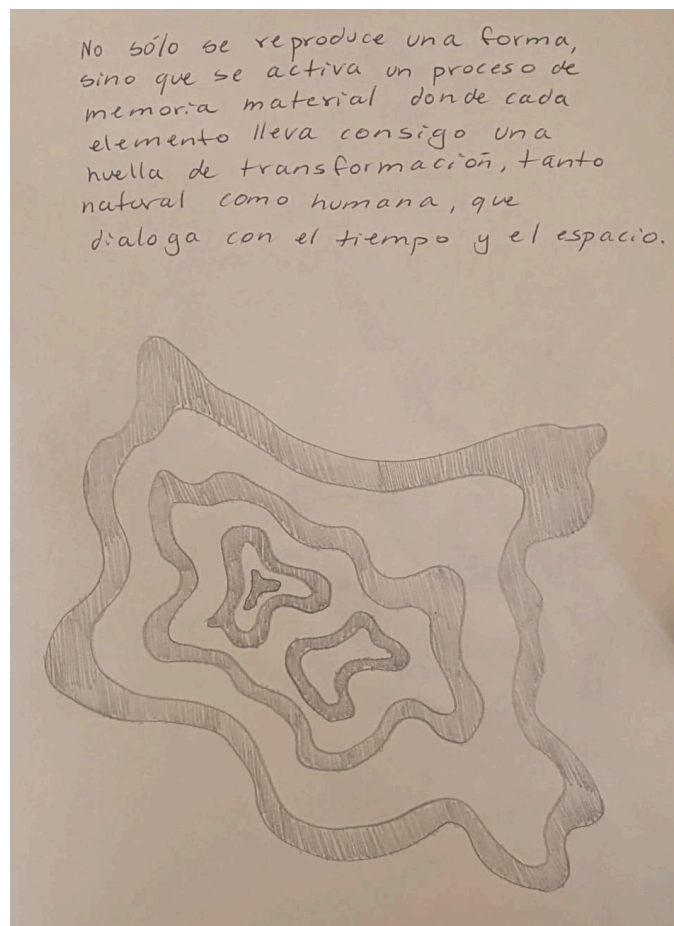 No sólo se reproduce una forma,
sino que se activa un proceso de
memoria material donde cada
elemento lleva consigo una
huella de transformación, tanto
natural como humana, que
dialoga con el tiempo y el espacio.